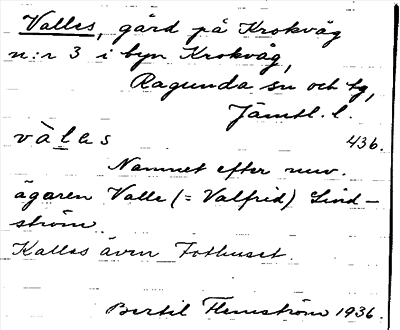 Valles, gård på Krokväg
n:r 3 i byn Krokväg,
Ragunda sn och tg,
Jämtl. l.
vàlas 436.
Namnet efter nuv.
ägaren Valle (= Valfrid) Lind-
ström.
Kallas även Fothuset.
Bertil Flemström 1936.